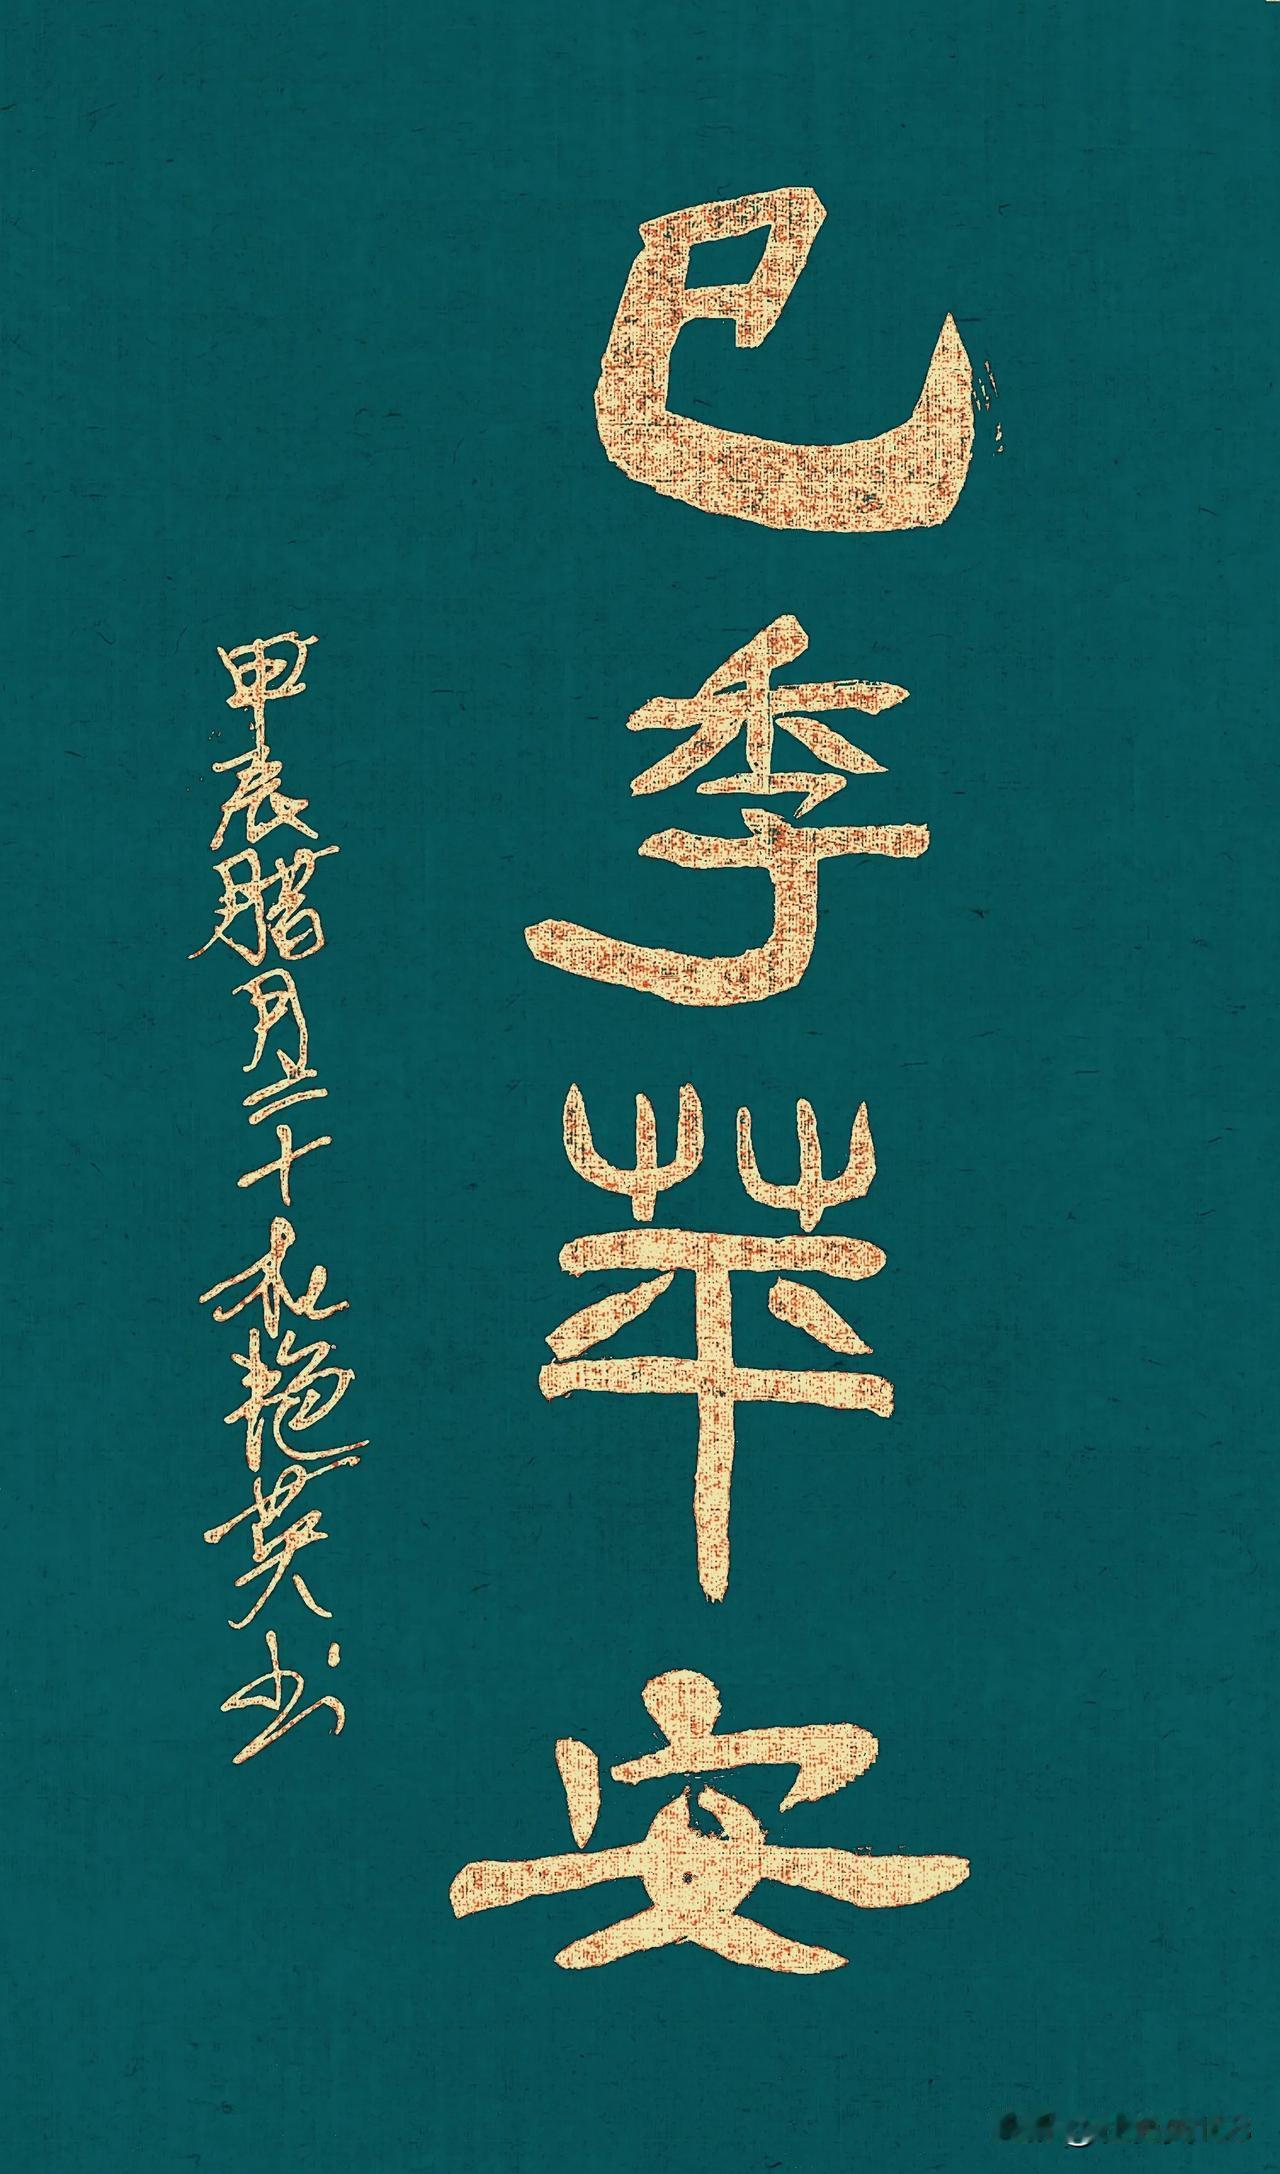 巳季苹安
甲辰腊月二十 和艳英书